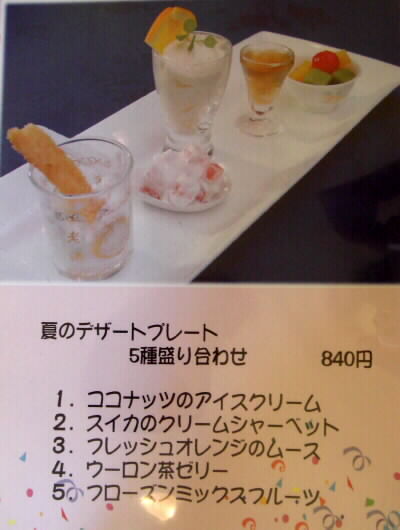 夏のデザートプレート
5種盛り合わせ 840円
1. ココナッツのアイスクリーム
2. スイカのクリームシャーベット
3. フレッシュオレンジのムース
4. ウーロン茶ゼリー
5. フローズンミックスフルーツ